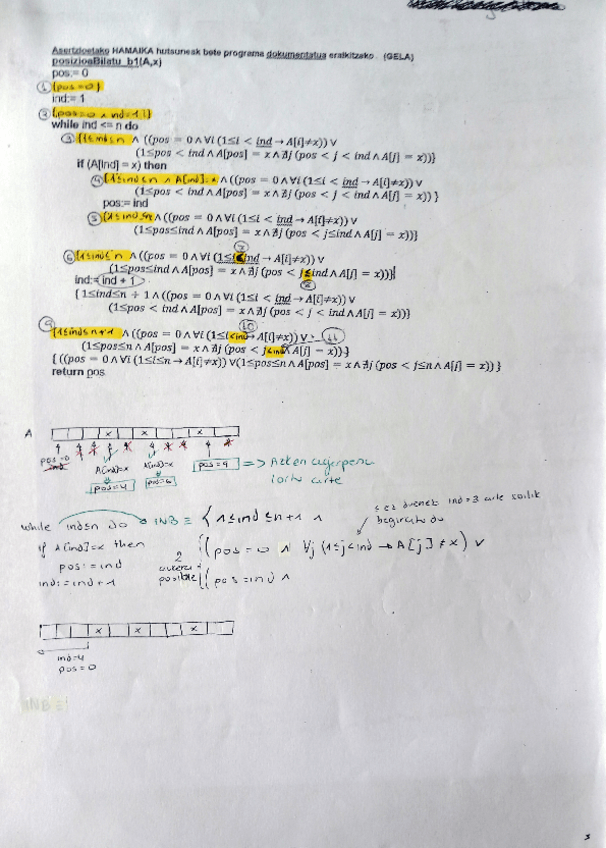 Asertzioetako HAMAIKA hutsuneak bete programa dokumentatua eraikitzeko. (GELA)
posizioaBilatu_b1(A,x)
pos:= 0
① {pos=0}
ind:= 1
② {pos=0 ∧ ind=1}
while ind <= n do
③ {1≤ind≤n ∧ ((pos = 0 ∧ ∀i (1≤i < ind → A[i]≠x)) ∨
(1≤pos < ind ∧ A[pos] = x ∧ ∄j (pos < j < ind ∧ A[j] = x))}
if (A[ind] = x) then
④ {1≤ind≤n ∧ A[ind]=x ∧ ((pos = 0 ∧ ∀i (1≤i < ind → A[i]≠x)) ∨
(1≤pos < ind ∧ A[pos] = x ∧ ∄j (pos < j < ind ∧ A[j] = x)) }
pos:= ind
⑤ {1≤ind≤n ∧ ((pos = 0 ∧ ∀i (1≤i < ind → A[i]≠x)) ∨
(1≤pos≤ind ∧ A[pos] = x ∧ ∄j (pos < j≤ind ∧ A[j] = x))}
⑦
⑥ {1≤ind≤n ∧ ((pos = 0 ∧ ∀i (1≤i≤ind → A[i]≠x)) ∨
(1≤pos≤ind ∧ A[pos] = x ∧ ∄j (pos < j≤ind ∧ A[j] = x))}
ind:= ind + 1 ⑧
{ 1≤ind≤n + 1 ∧ ((pos = 0 ∧ ∀i (1≤i < ind → A[i]≠x)) ∨
(1≤pos < ind ∧ A[pos] = x ∧ ∄j (pos < j < ind ∧ A[j] = x))}
⑨ ⑩
{1≤ind≤n+1 ∧ ((pos = 0 ∧ ∀i (1≤i<ind→ A[i]≠x)) ∨ ⑪
(1≤pos≤n ∧ A[pos] = x ∧ ∄j (pos < j<ind ∧ A[j] = x)) }
{ ((pos = 0 ∧ ∀i (1≤i≤n → A[i]≠x)) ∨(1≤pos≤n ∧ A[pos] = x ∧ ∄j (pos < j≤n ∧ A[j] = x)) }
return pos
A x x x
pos=0
ind
A[ind]=x A[ind]=x pos=9 => Azken agerpena
pos=4 pos=6 lortu arte
while ind≤n do INB ≡ { 1≤ind≤n+1 ∧
ind=3 arte soilik
begiratu du
if A[ind]=x then 2 ((pos=0 ∧ ∀j (1≤j<ind → A[j]≠x) ∨
pos:=ind aukera
posible (pos=ind ∧
ind:=ind+1
x x x
ind=4
pos=0
INB ≡
5